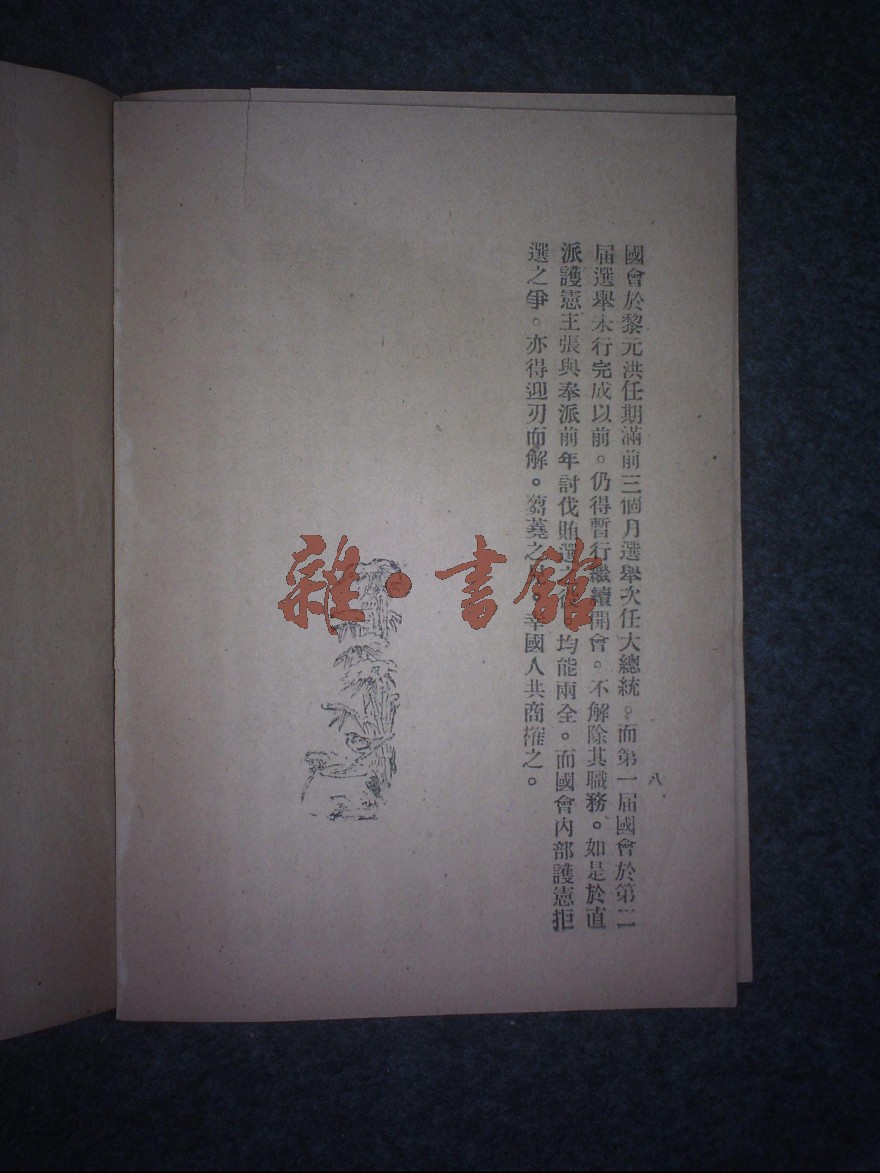 八
國會於黎元洪任期滿前三個月選舉次任大總統。而第一屆國會於第二
屆選舉未行完成以前。仍得暫行繼續開會。不解除其職務。如是於直
派護憲主張與奉派前年討伐賄選均能兩全。而國會內部護憲拒
選之爭。亦得迎刃而解。芻蕘之幸國人共商榷之。
雜·書館